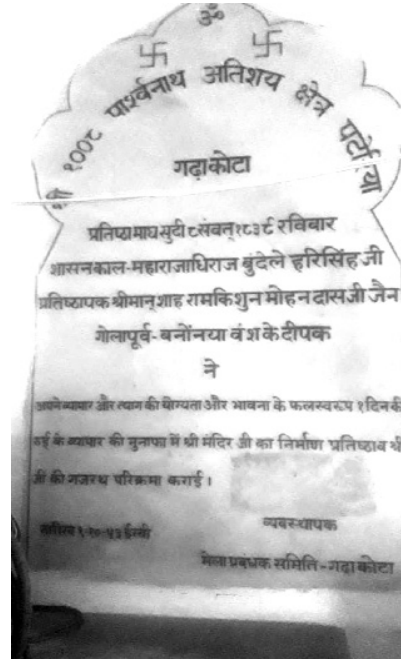 ॐ
श्री १००८ पार्श्वनाथ अतिशय क्षेत्र पटेरिया
गढ़ाकोटा
प्रतिष्ठा माघ सुदी ८ संवत् १८३९ रविवार
शासनकाल-महाराजाधिराज बुंदेले हरिसिंह जी
प्रतिष्ठापक श्रीमान् शाह रामकिशुन मोहनदासजी जैन
गोलापूर्व-बनोंनया वंश के दीपक
ने
अपने व्यापार और त्याग की योग्यता और भावना के फलस्वरुप १ दिन की
रुई के व्यापार की मुनाफा में श्री मंदिर जी का निर्माण प्रतिष्ठा व श्री
जी की गजरथ परिक्रमा कराई।
तारीख
व्यवस्थापक
मेला प्रबंधक समिति-गढ़ाकोटा